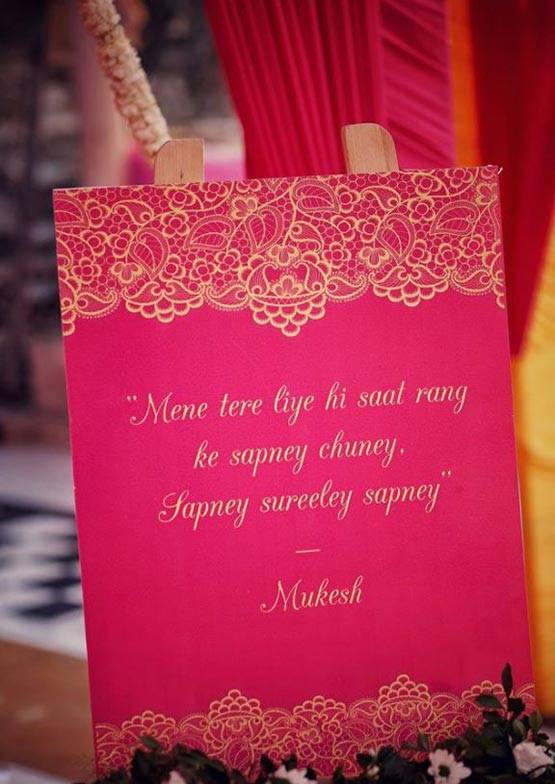 "Mene tere liye hi saat rang
ke sapney chuney,
Sapney sureeley sapney"
—
Mukesh